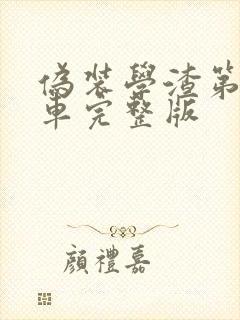 偽裝學渣第
車完整版
顏禮嘉